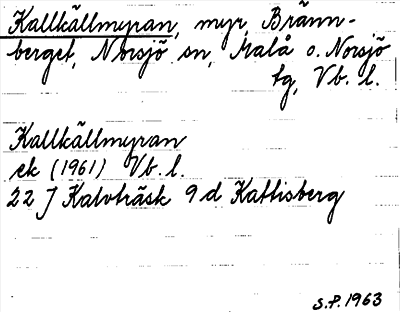 Kallkällmyran, myr, Bränn-
berget, Norsjö sn, Malå o. Norsjö
tg, Vb. l.
Kallkällmyran
ek (1961) Vb. l.
22 J Kalvträsk 9 d Kattisberg
S.P. 1963